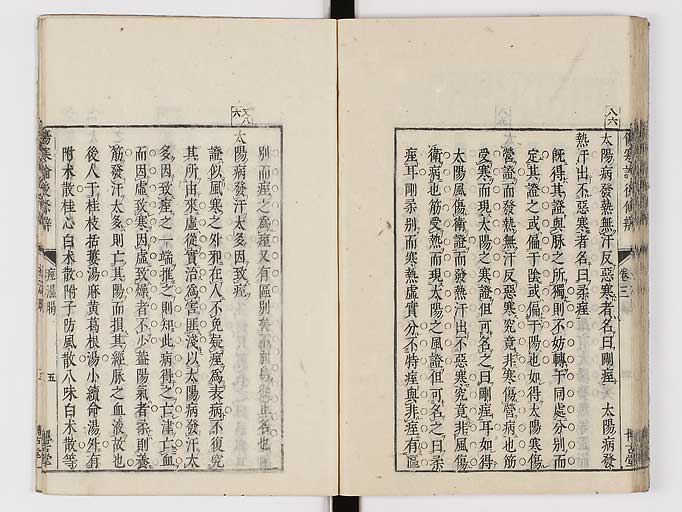 太陽病發熱無汗反惡寒者名曰剛痓 太陽病發
熱汗出不惡寒者名曰柔痓
旣得其證與脉之所獨則不妨轉于同處分別而
定其證之或偏于陰或偏于陽也如得太陽寒傷
營證而發熱無汗反惡寒究竟非寒傷營病也筋
受寒而現太陽之寒證但可名之曰剛痓耳如得
太陽風傷衛證而發熱汗出不惡寒究竟非風傷
衛病也筋受熱而現太陽之風證但可名之曰柔
痓耳剛柔別而寒熱虛實分不特痓與非痓有區
別而痓之爲痓又有區別矣
太陽病發汗太多因致痓
證似風寒之外邪在人不免疑痓爲表病不復究
其所由來虛從實治爲害匪淺以太陽病發汗太
多因致痓之一端推之則知此病得之亡津亡血
而因虛致寒因虛致燥者不少蓋陽氣者柔則養
筋發汗太多則亡其陽而損其經脉之血液故也
後人于桂枝括蔞湯麻黃葛根湯小續命湯外有
附朮散桂心白朮散附子防風散八味白朮散等
卷三
五